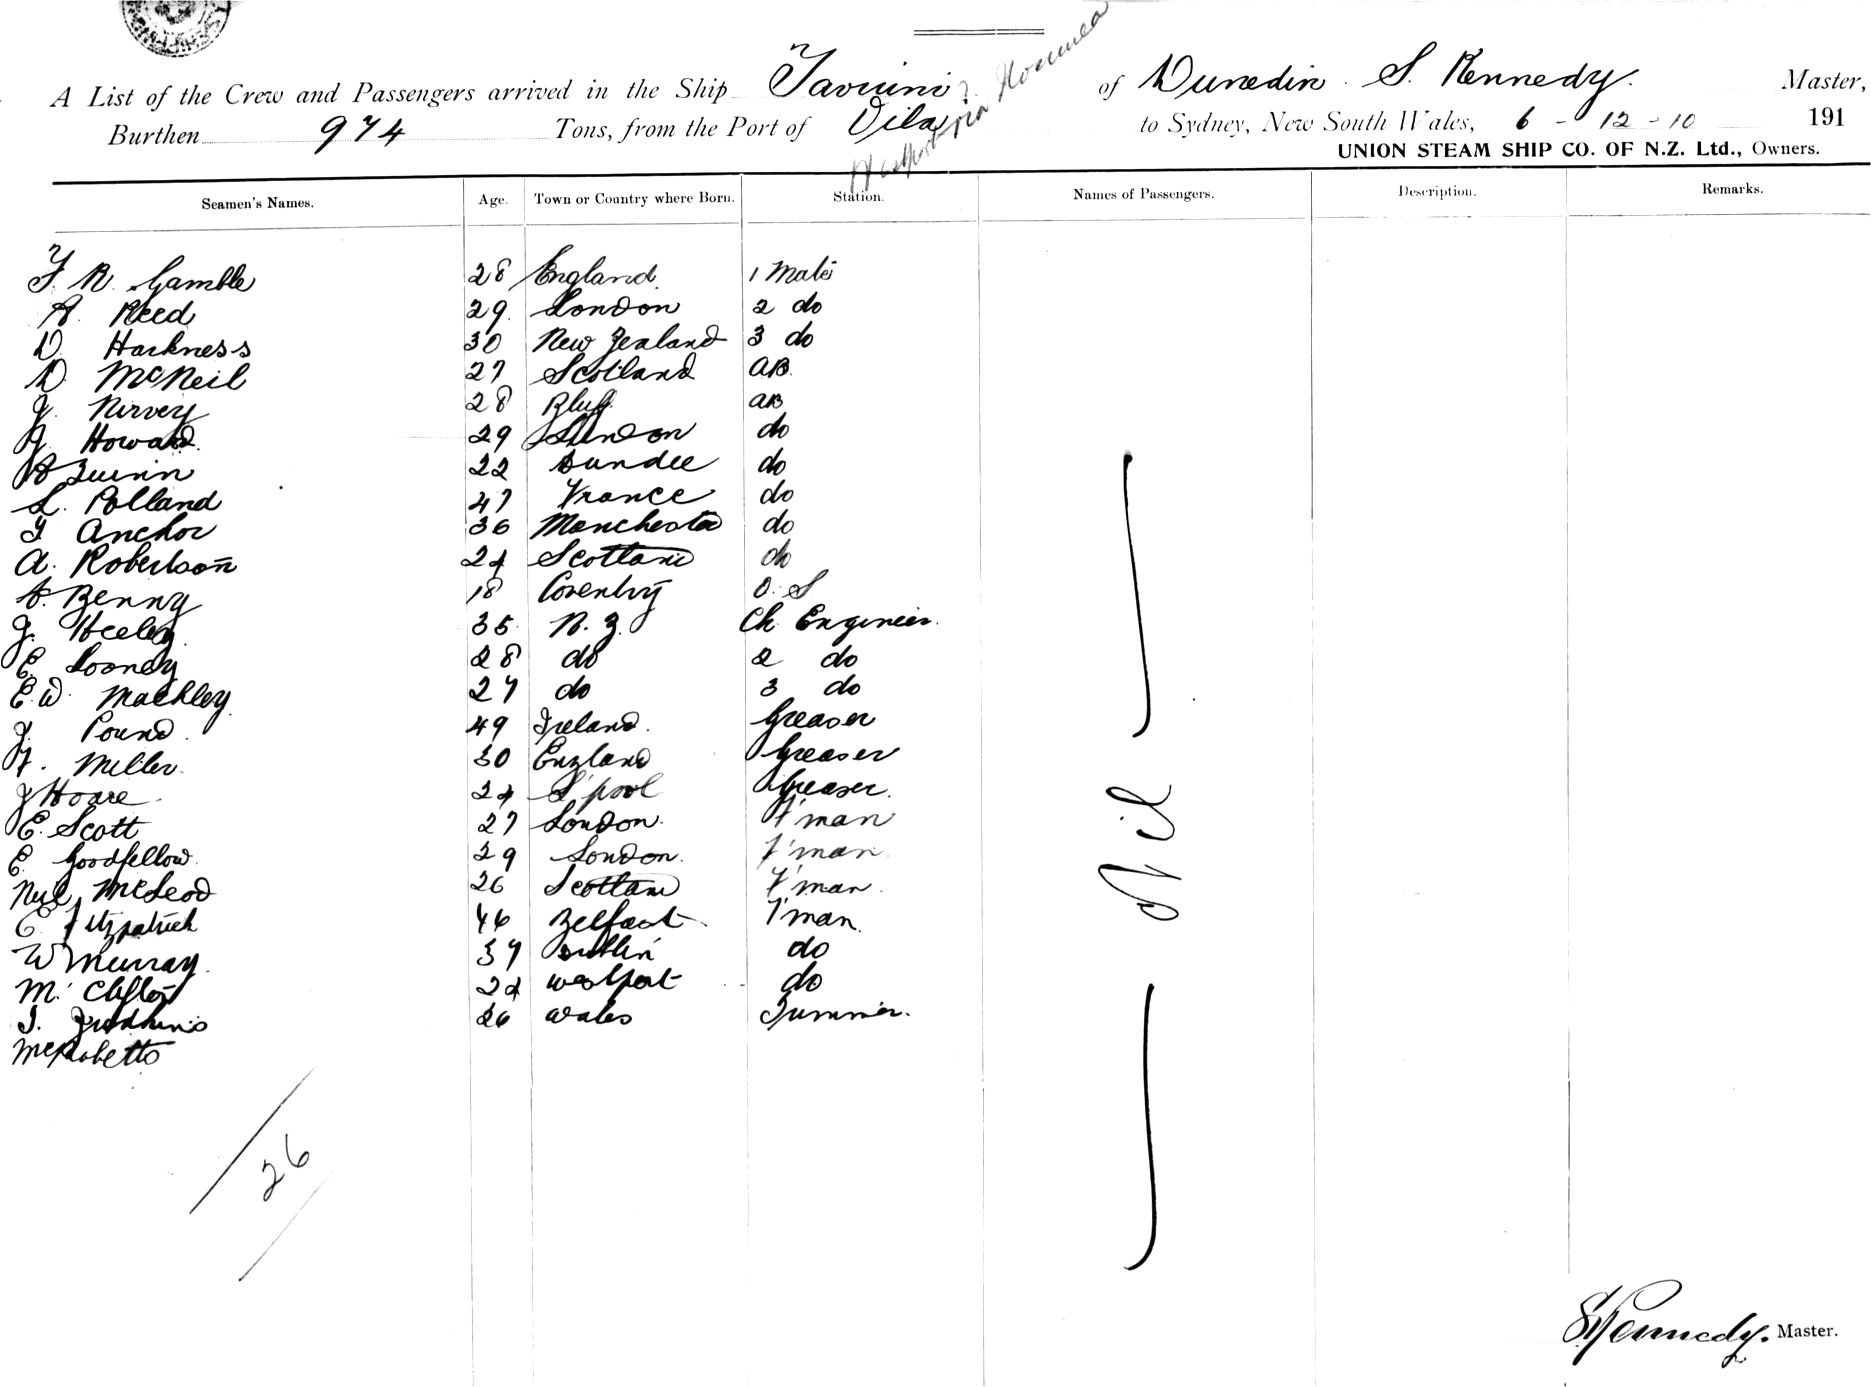 A List of the Crew and Passengers arrived in the Ship Taviuni of Dunedin. S. Kennedy. Master,
Burthen 974 Tons, from the Port of Vila Westport via Noumea to Sydney, New South Wales, 6 - 12 - 10 191
UNION STEAM SHIP CO. OF N.Z. Ltd., Owners.
Seamen's Names. Age. Town or Country where Born. Station. Names of Passengers. Description. Remarks.
F. R. Gamble 28 England 1 Mate
A. Reed 29. London 2 do
D. Harkness 30 New Zealand 3 do
D McNeil 27 Scotland AB.
J. Nirvey 28 Bluff AB
J Howard 29 London do
A Quinn 22 Dundee do
L. Polland 47 France do
T Anchor 36 Manchester do
A. Robertson 24 Scotland do
A. Benny 18 Coventry O. S
J. Heeley 35 N. Z. Ch Engineer.
E. Looney 28 do 2 do
E. W. Machley 27 do 3 do
J. Pound. 49 Ireland. Greaser
F. Miller. 30 England Greaser
J Hoare 24 L'pool Greaser.
E. Scott 27 London. F'man
E. Goodfellow. 29 London. F'man.
Neil McLeod 26 Scotland F'man.
C. Fitzpatrick 46 Belfast F'man.
W Murray. 37 Dublin do
M. Clifton 24 Westport do
J. 26 Wales Trimmer.
McRobetts
Nil
26
S Kennedy. Master.